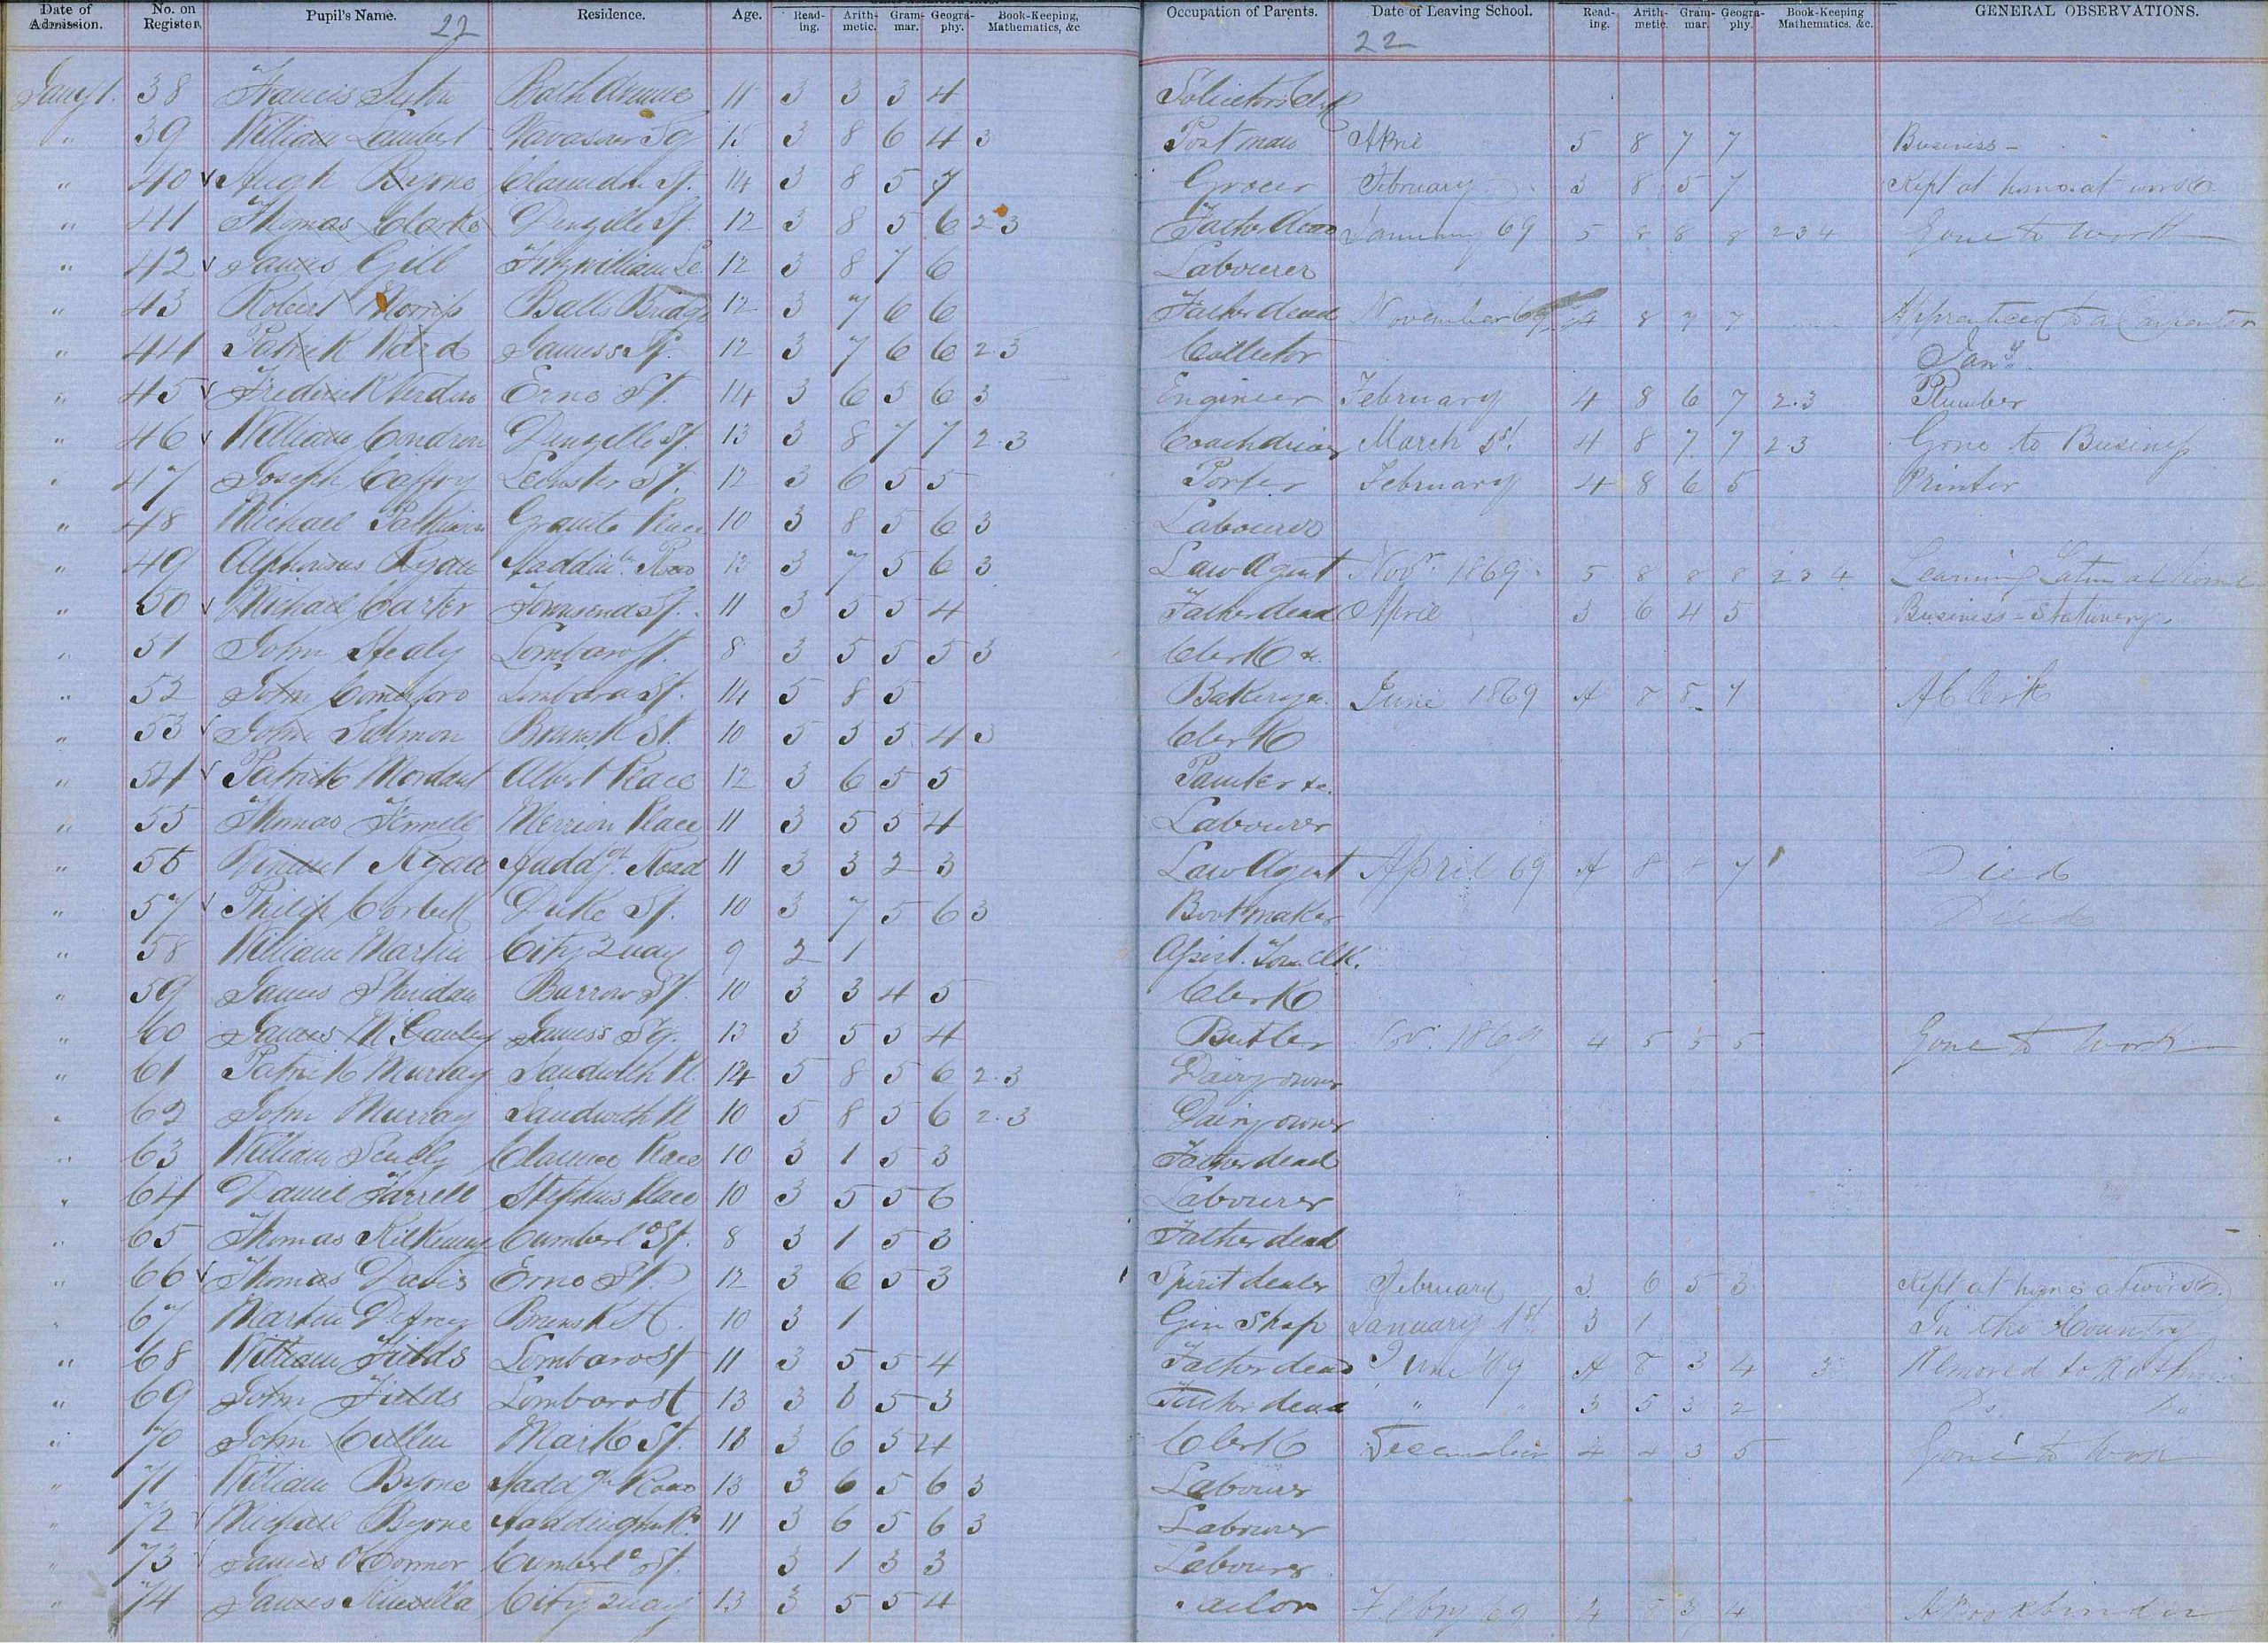 Date of Admission. No. on Register. Pupil's Name. Residence. Age. Read-ing. Arith-metic. Gram-mar. Geogra-phy. Book-Keeping, Mathematics, &c Occupation of Parents. Date of Leaving School. Read-ing. Arith-metic. Gram-mar. Geogra-phy. Book-Keeping Mathematics, &c. GENERAL OBSERVATIONS.
22 22
Jany 1. 38 Francis Bath Avenue 11 3 3 3 4 Solicitors Clk
" 39 William Lambert Sq 3 8 6 4 3 Postman April 5 8 7 7 Business -
" 40 Hugh Byrne Clarendon St. 14 3 8 5 7 Grocer February 3 8 5 7 Kept at home at work
" 41 Thomas Clarke Denzille St. 12 3 8 5 6 2 3 Father dead January 69 5 8 8 8 2 3 4 Gone to work
" 42 James Gill Fitzwilliam 12 3 8 7 6 Labourer
" 43 Robert Morris Balls Bridge 12 3 7 6 6 Father dead November 8 7 7 Apprenticed to a Carpenter
" 44 Patrick Ward James's St. 12 3 7 6 6 2 3 Collector Jany
" 45 Frederick Erne St. 14 3 6 5 6 3 Engineer February 4 8 6 7 2.3 Plumber
" 46 William Condron Denzille St. 13 3 8 7 7 2.3 Coachdriver March 1st 4 8 7 7 2 3 Gone to Business
" 47 Joseph Caffry Leinster St. 12 3 6 5 5 Porter February 4 8 6 5 Printer
" 48 Michael Parkinson Granite Place 10 3 8 5 6 3 Labourer
" 49 Alphonsus Ryan Haddin Road 13 3 7 5 6 3 Law Agent Novr. 1869 5 8 8 8 2 3 4 Learning Latin at home
" 50 Michael Carter Townsend St. 11 3 5 5 4 Father dead April 3 6 4 5 Business - Stationery.
" 51 John Healy Lombard St. 8 3 5 5 5 3 Clerk &
" 52 John Comerford Lombard St. 14 5 8 5 June 1869 A 8 8 7 A Clerk
" 53 John Salmon Brunsk St. 10 5 5 5 4 3 Clerk
" 54 Patrick Mordaunt Albert Place 12 3 6 5 5 Painter &c.
" 55 Thomas Fennell Merrion Place 11 3 5 5 4 Labourer
" 56 Vincent Ryan Haddgn Road 11 3 3 2 3 Law Agent April 69 A 8 8 7 Died
" 57 Philip Corbett Duke St. 10 3 7 5 6 3 Bootmaker
" 58 William Martin City Quay 9 2 1 Assist. Town Clk.
" 59 James Sheridan Barrow St. 10 3 3 4 5 Clerk
" 60 James McCauley James's Sq. 13 3 5 5 4 Butler Nov. 1869 4 5 5 5 Gone to work
" 61 Patrick Murray Sandwith Pl. 12 5 8 5 6 2.3 Dairy owner
" 62 John Murray Sandwith Pl 10 5 8 5 6 2.3 Dairy owner
" 63 William Scully Clarence Place 10 3 1 5 3 Father dead
" 64 Daniel Farrell Stephens Place 10 3 5 5 6 Labourer
" 65 Thomas Kilkenny Cumberld St. 8 3 1 5 3 Father dead
" 66 Thomas Davis Erne St. 12 3 6 5 3 Spirit dealer February 3 6 5 3 Kept at home at work.
" 67 Martin Brunsk St. 10 3 1 Gin Shop January 1st. 3 1 In the Country
" 68 William Fields Lombard St 11 3 5 5 4 Father dead June '69 A 8 3 4 3 Removed to
" 69 John Fields Lombard St 13 3 6 5 3 Father dead " " 3 5 3 2 Do Do
" 70 John Cullen Mark St. 3 6 5 4 Clerk December 4 4 3 5 Gone to work
" 71 William Byrne Haddgn Road 13 3 6 5 6 3 Labourer
" 72 Michael Byrne Haddington R. 11 3 6 5 6 3 Labourer
" 73 James O'Connor Cumberld St. 3 1 3 3 Labourer
" 74 James Kinsella City Quay 13 3 5 5 4 Tailor Feby 69 4 8 3 4 A Bookbinder